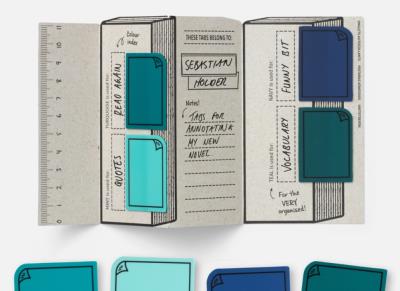 Colour
index
TURQUOISE is used for:
READ AGAIN
MINT is used for:
QUOTES
THESE TABS BELONG TO:
SEBASTIAN
HOLDER
Notes!
TABS FOR
ANNOTATING
MY NEW
NOVEL
NAVY is used for:
FUNNY BIT
TEAL is used for:
VOCABULARY
For the
VERY
organised!
0
1
2
3
4
5
6
7
8
9
10
11